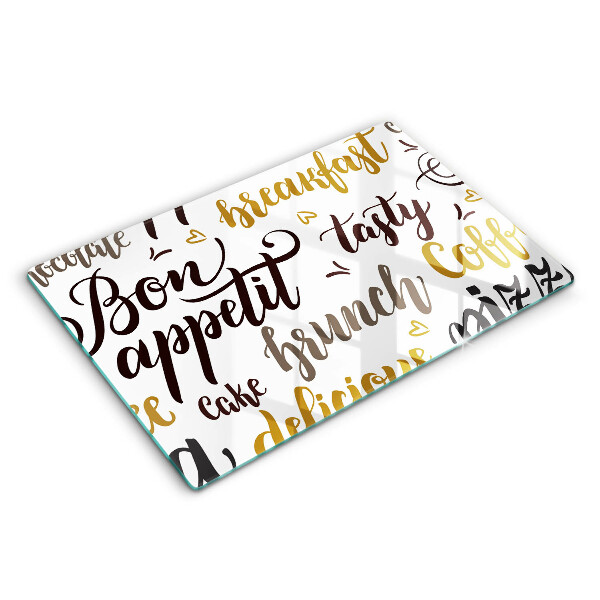 breakfast
chocolate
tasty
Coff
Bon
appetit
brunch
pizz
cake
delicious